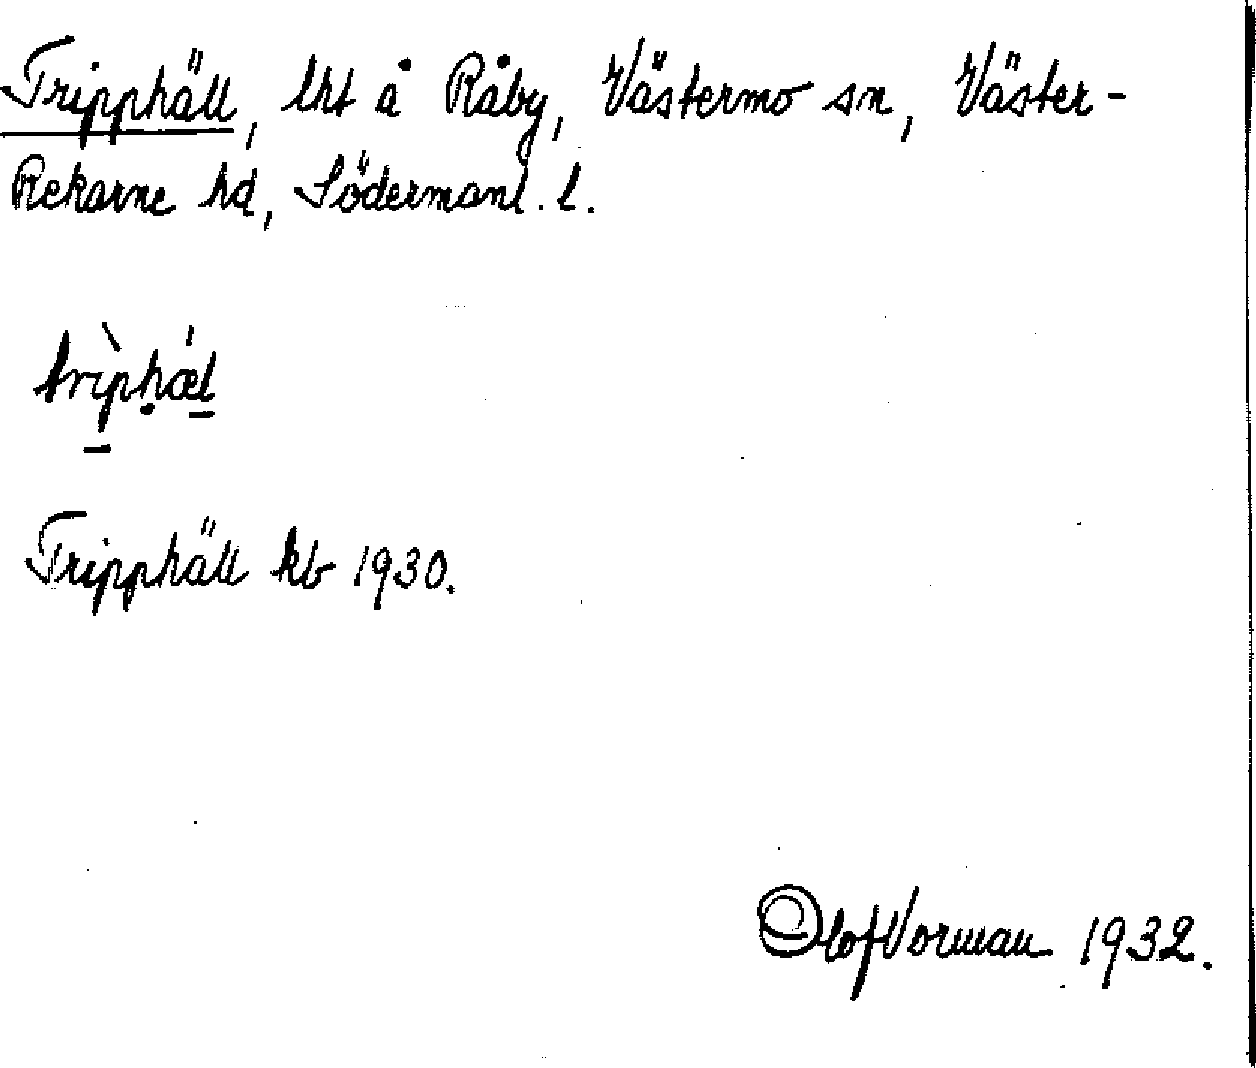 Tripphäll, lht å Råby, Västermo sn, Väster-
Rekarne hd, Södermanl. l.
trìphæ̍l
Tripphäll kb 1930.
Olof Vorman 1932.